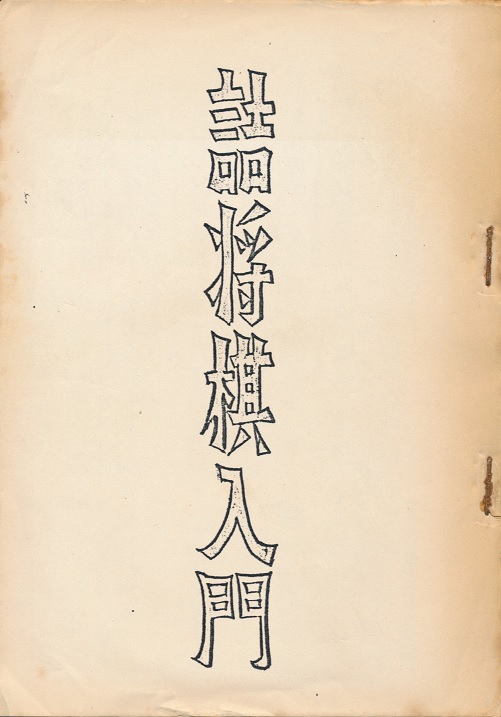 詰将棋入門